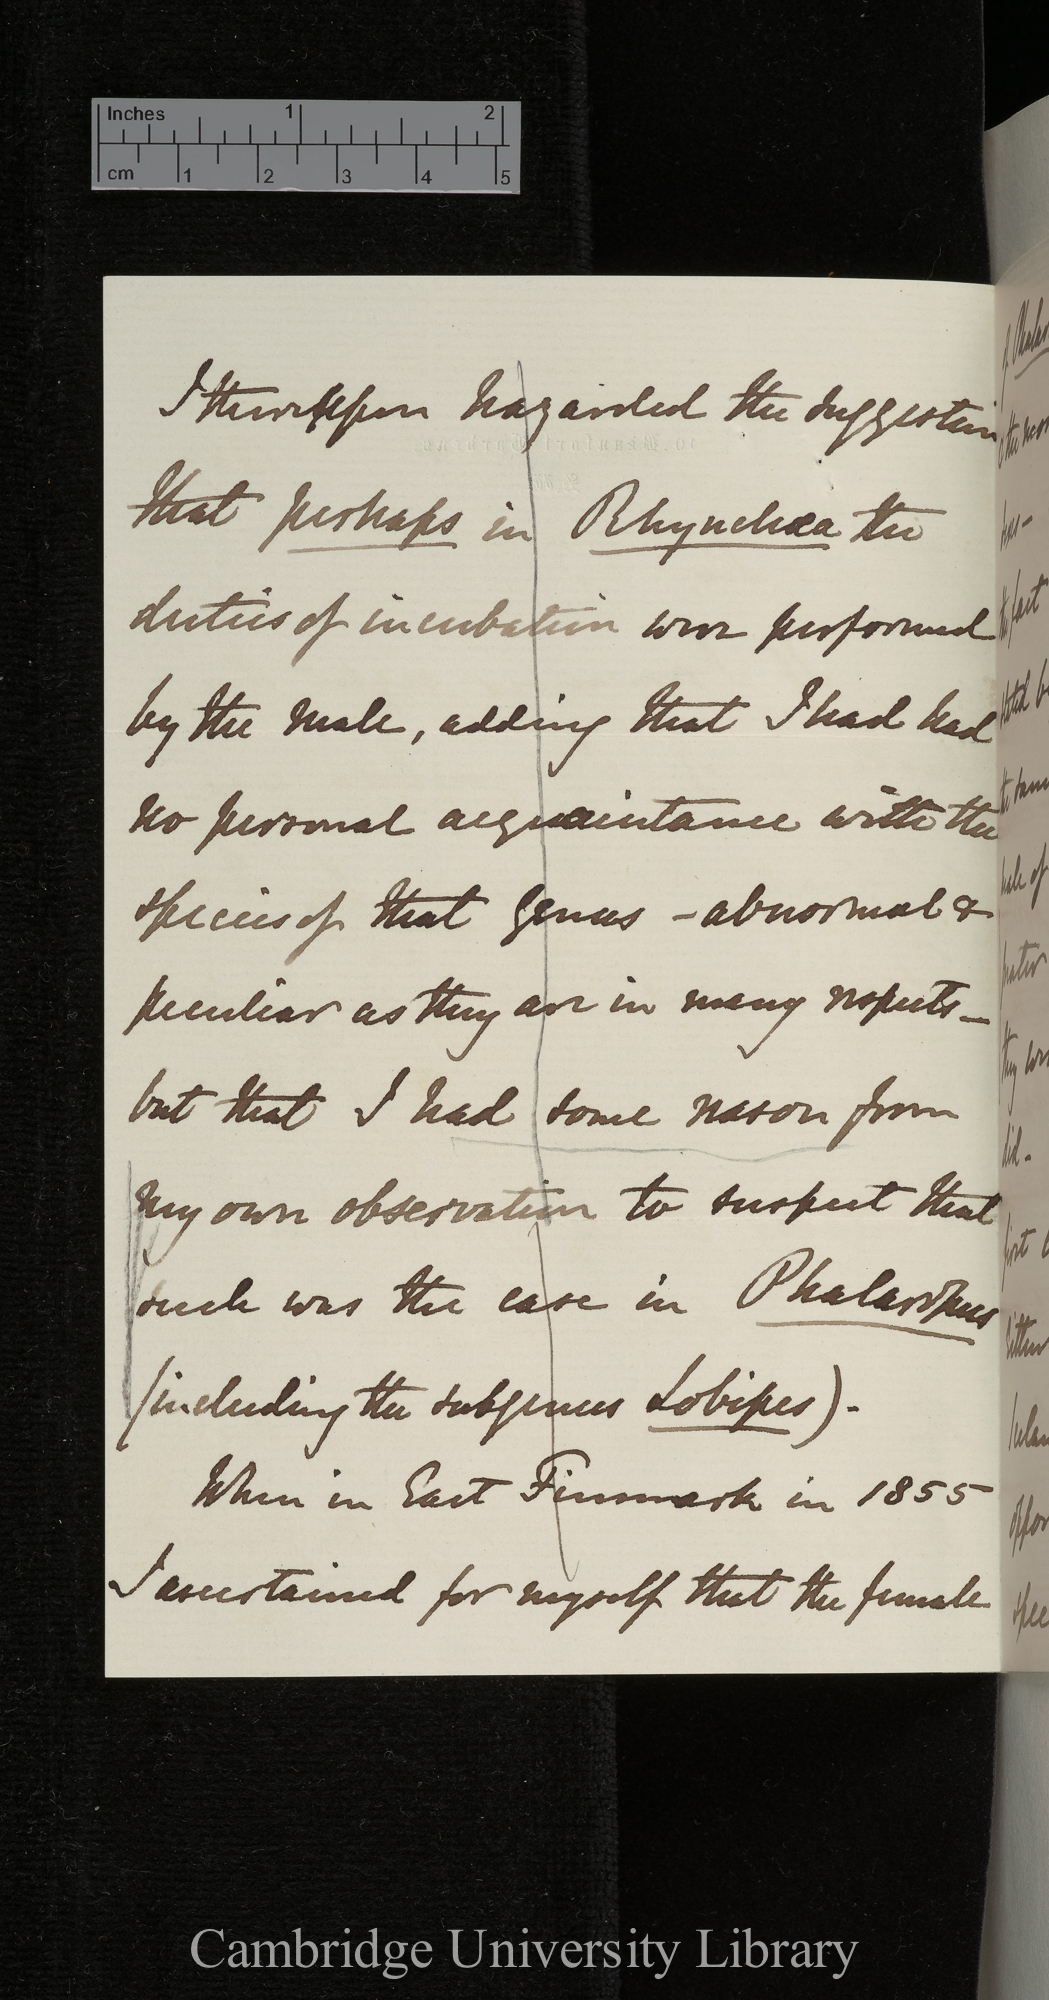 Inches 1 2
cm 1 2 3 4 5
I thereupon hazarded the suggestion
that perhaps in Rhynchæa the
duties of incubation were performed
by the male, adding that I had had
no personal acquaintance with the
species of that genus – abnormal &
peculiar as they are in many respects –
but that I had some reason from
my own observation to suspect that
such was the case in Phalaropus
(including the subgenus Lobipes).
When in East Finmark in 1855
I ascertained for myself that the female
Cambridge University Library